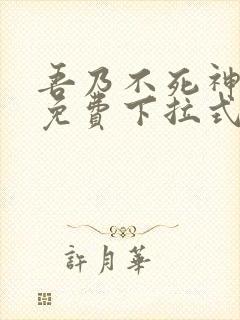 吾乃不死神
免費下拉式
許月華